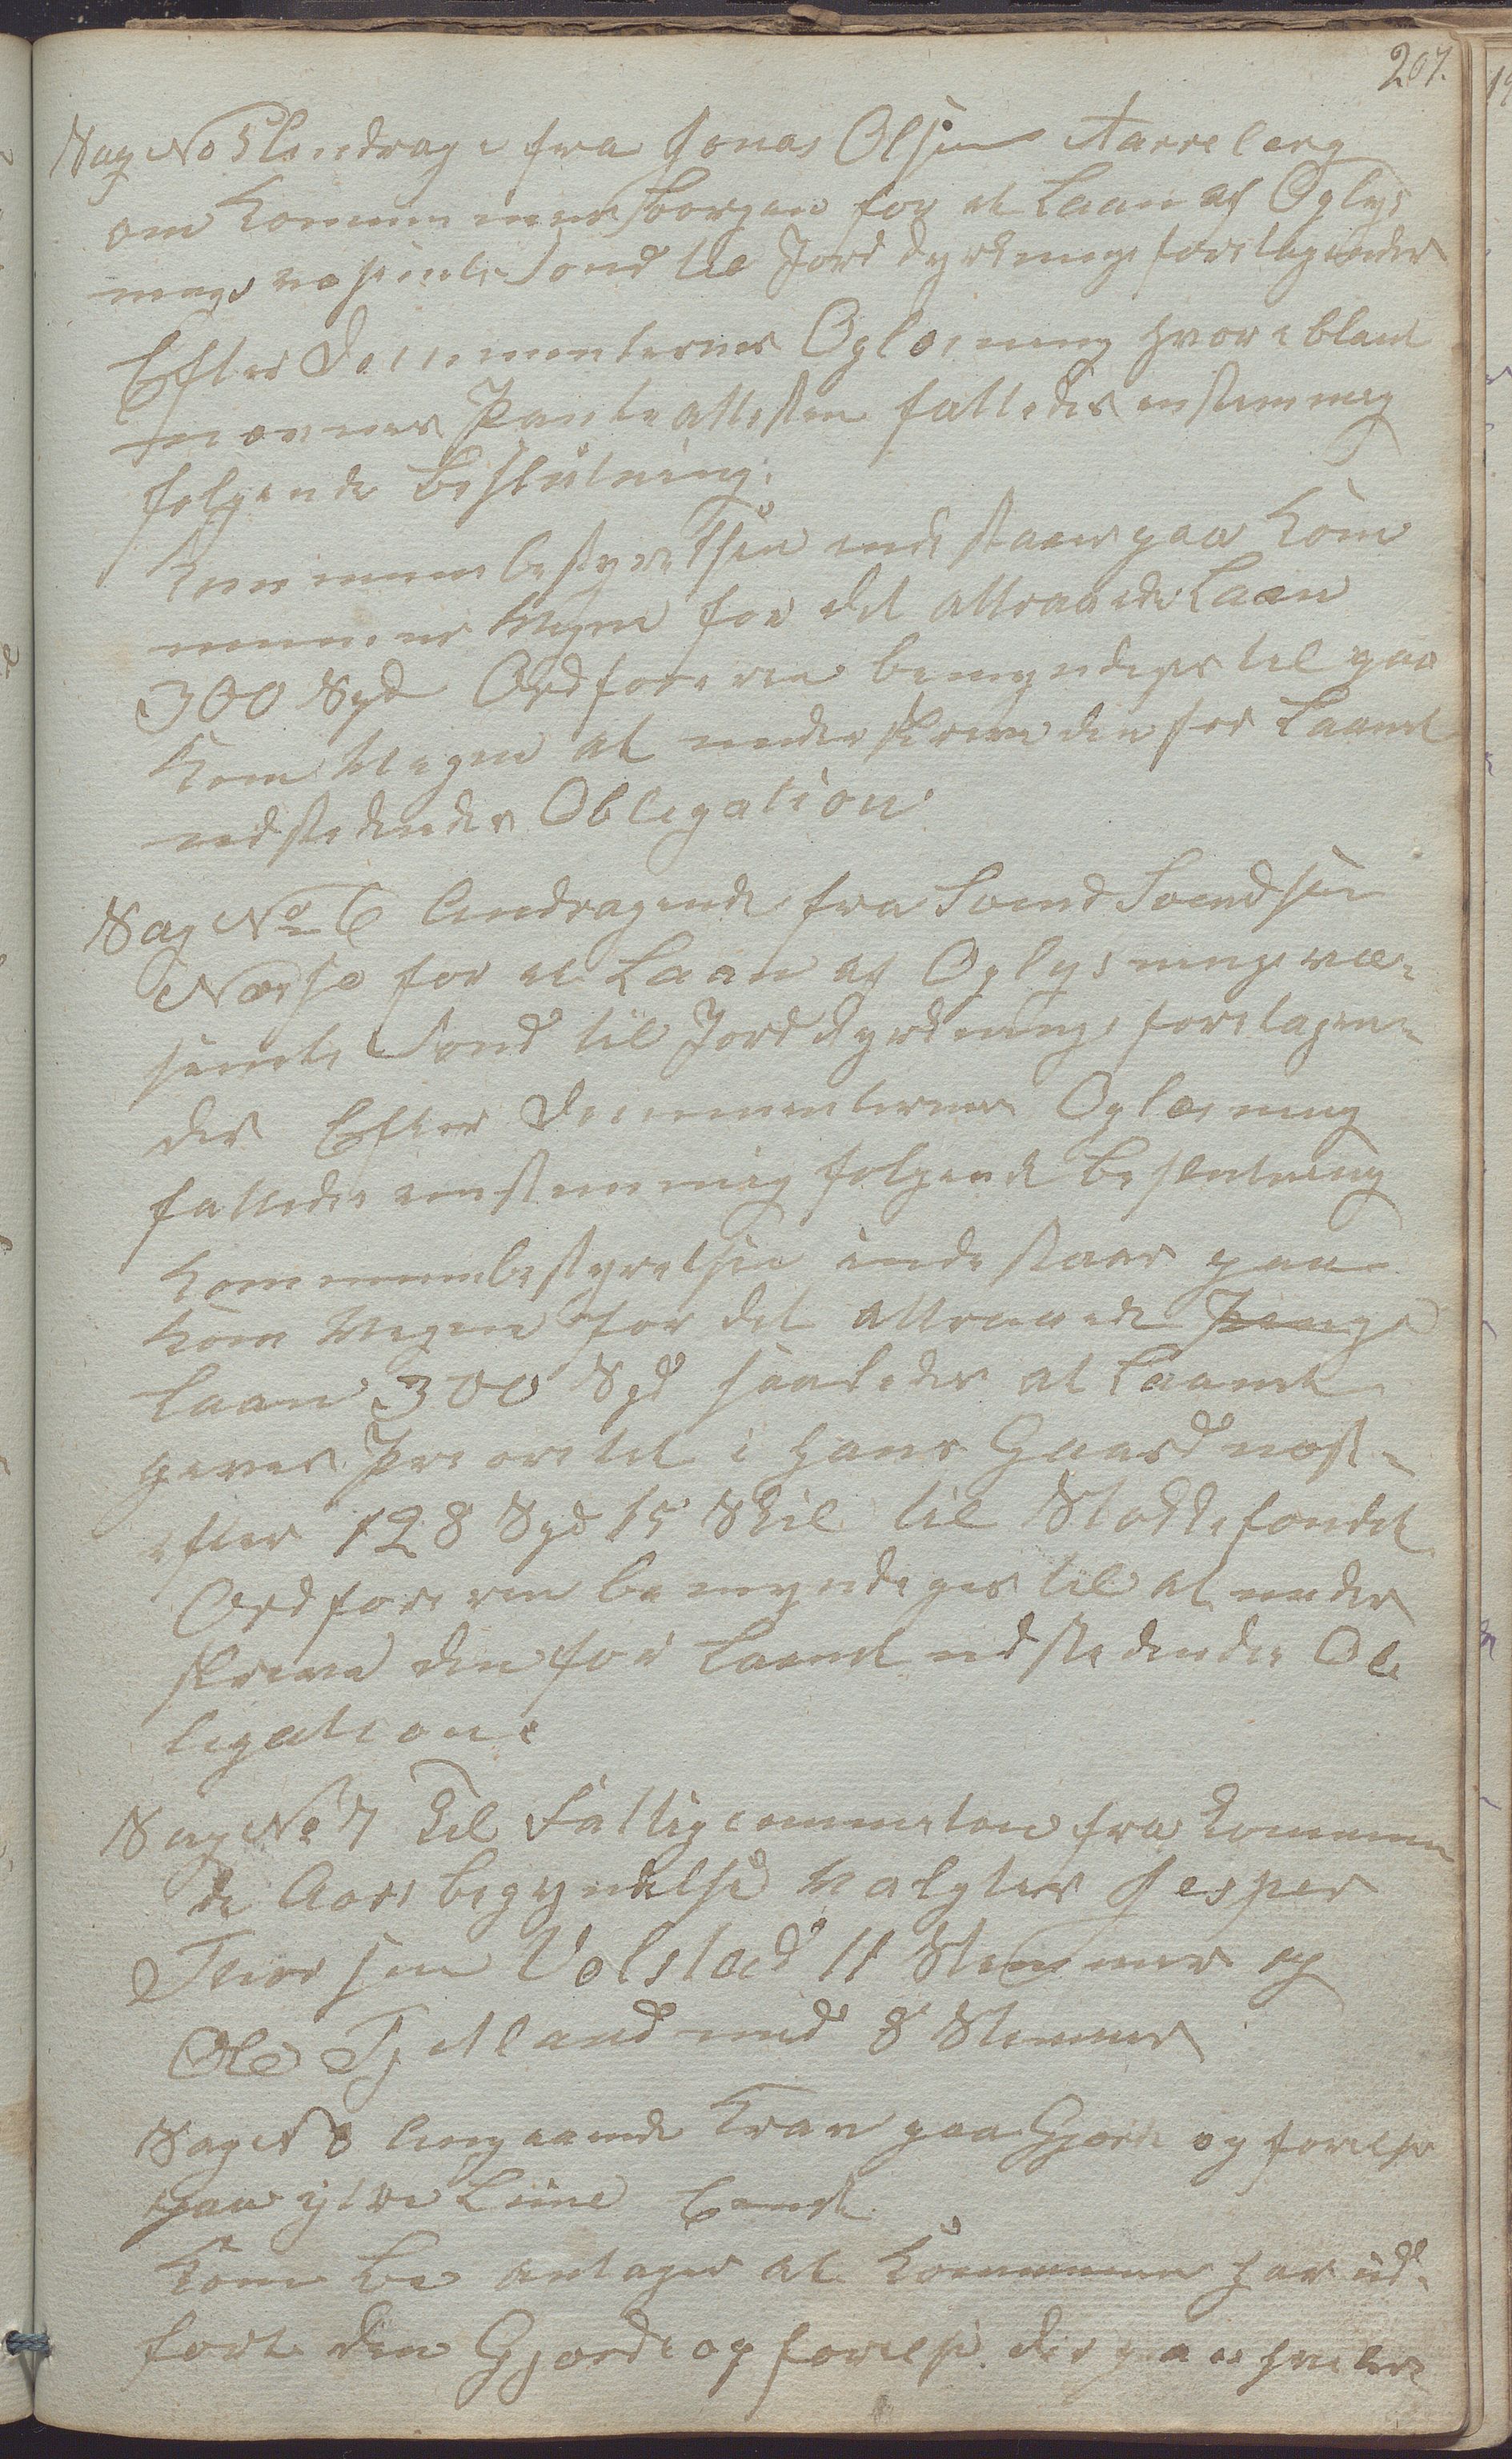 207.
Sag No 5 Andrag fra Jonas Olsen Aarreberg
om Kommunens Borgen for et Laan af Oplys
nings væsenets Fond til Jord dyrknings foretagender
Efter Documenternes Oplæsning hvoriblant
Panteattesten fattedes enstemmig
følgende Beslutning.
Kommunebestyrelsen indestaaer paa Kom
munens Vegne for det attraaede Laan
300 Spd Ordføreren bemyndiges til paa
Kom Vegne at underskrive den for Laanet
udstedendes Obligation
Sag No 6 Andragende fra Svend Svendsen
Næse for et Laan af Oplysningsvæ-
senets Fond til Jorddyrknings foretagen-
der Efter Documenternes Oplæsning
fattedes enstemmig følgende Beslutning
Kommunebestyrelsen indestaar paa
Kom Vegne for det attraaede Penge
Laan 300 Spd saaledes at Laanet
gives Prioritet i hans Gaard næst-
efter 128 Spd 15 Skil til Støttefondet
Ordføreren bemyndiges til at under
skrive den for Laanet udstedendes Ob
ligation.
Sag No 7 Til Fattigcommisionen fra kommen
de Aars begyndelse Valgtes Jesper
Thorsen Volstad 11 Stemmer og
Ole Tjetland med 8 Stemmer
Sag N 8 Angaaende Krav paa Gjærde opførelse
paa ytre Lime
Kom Be antager at Kommunen har ud-
ført den Gjærdeopførelse der paahviler